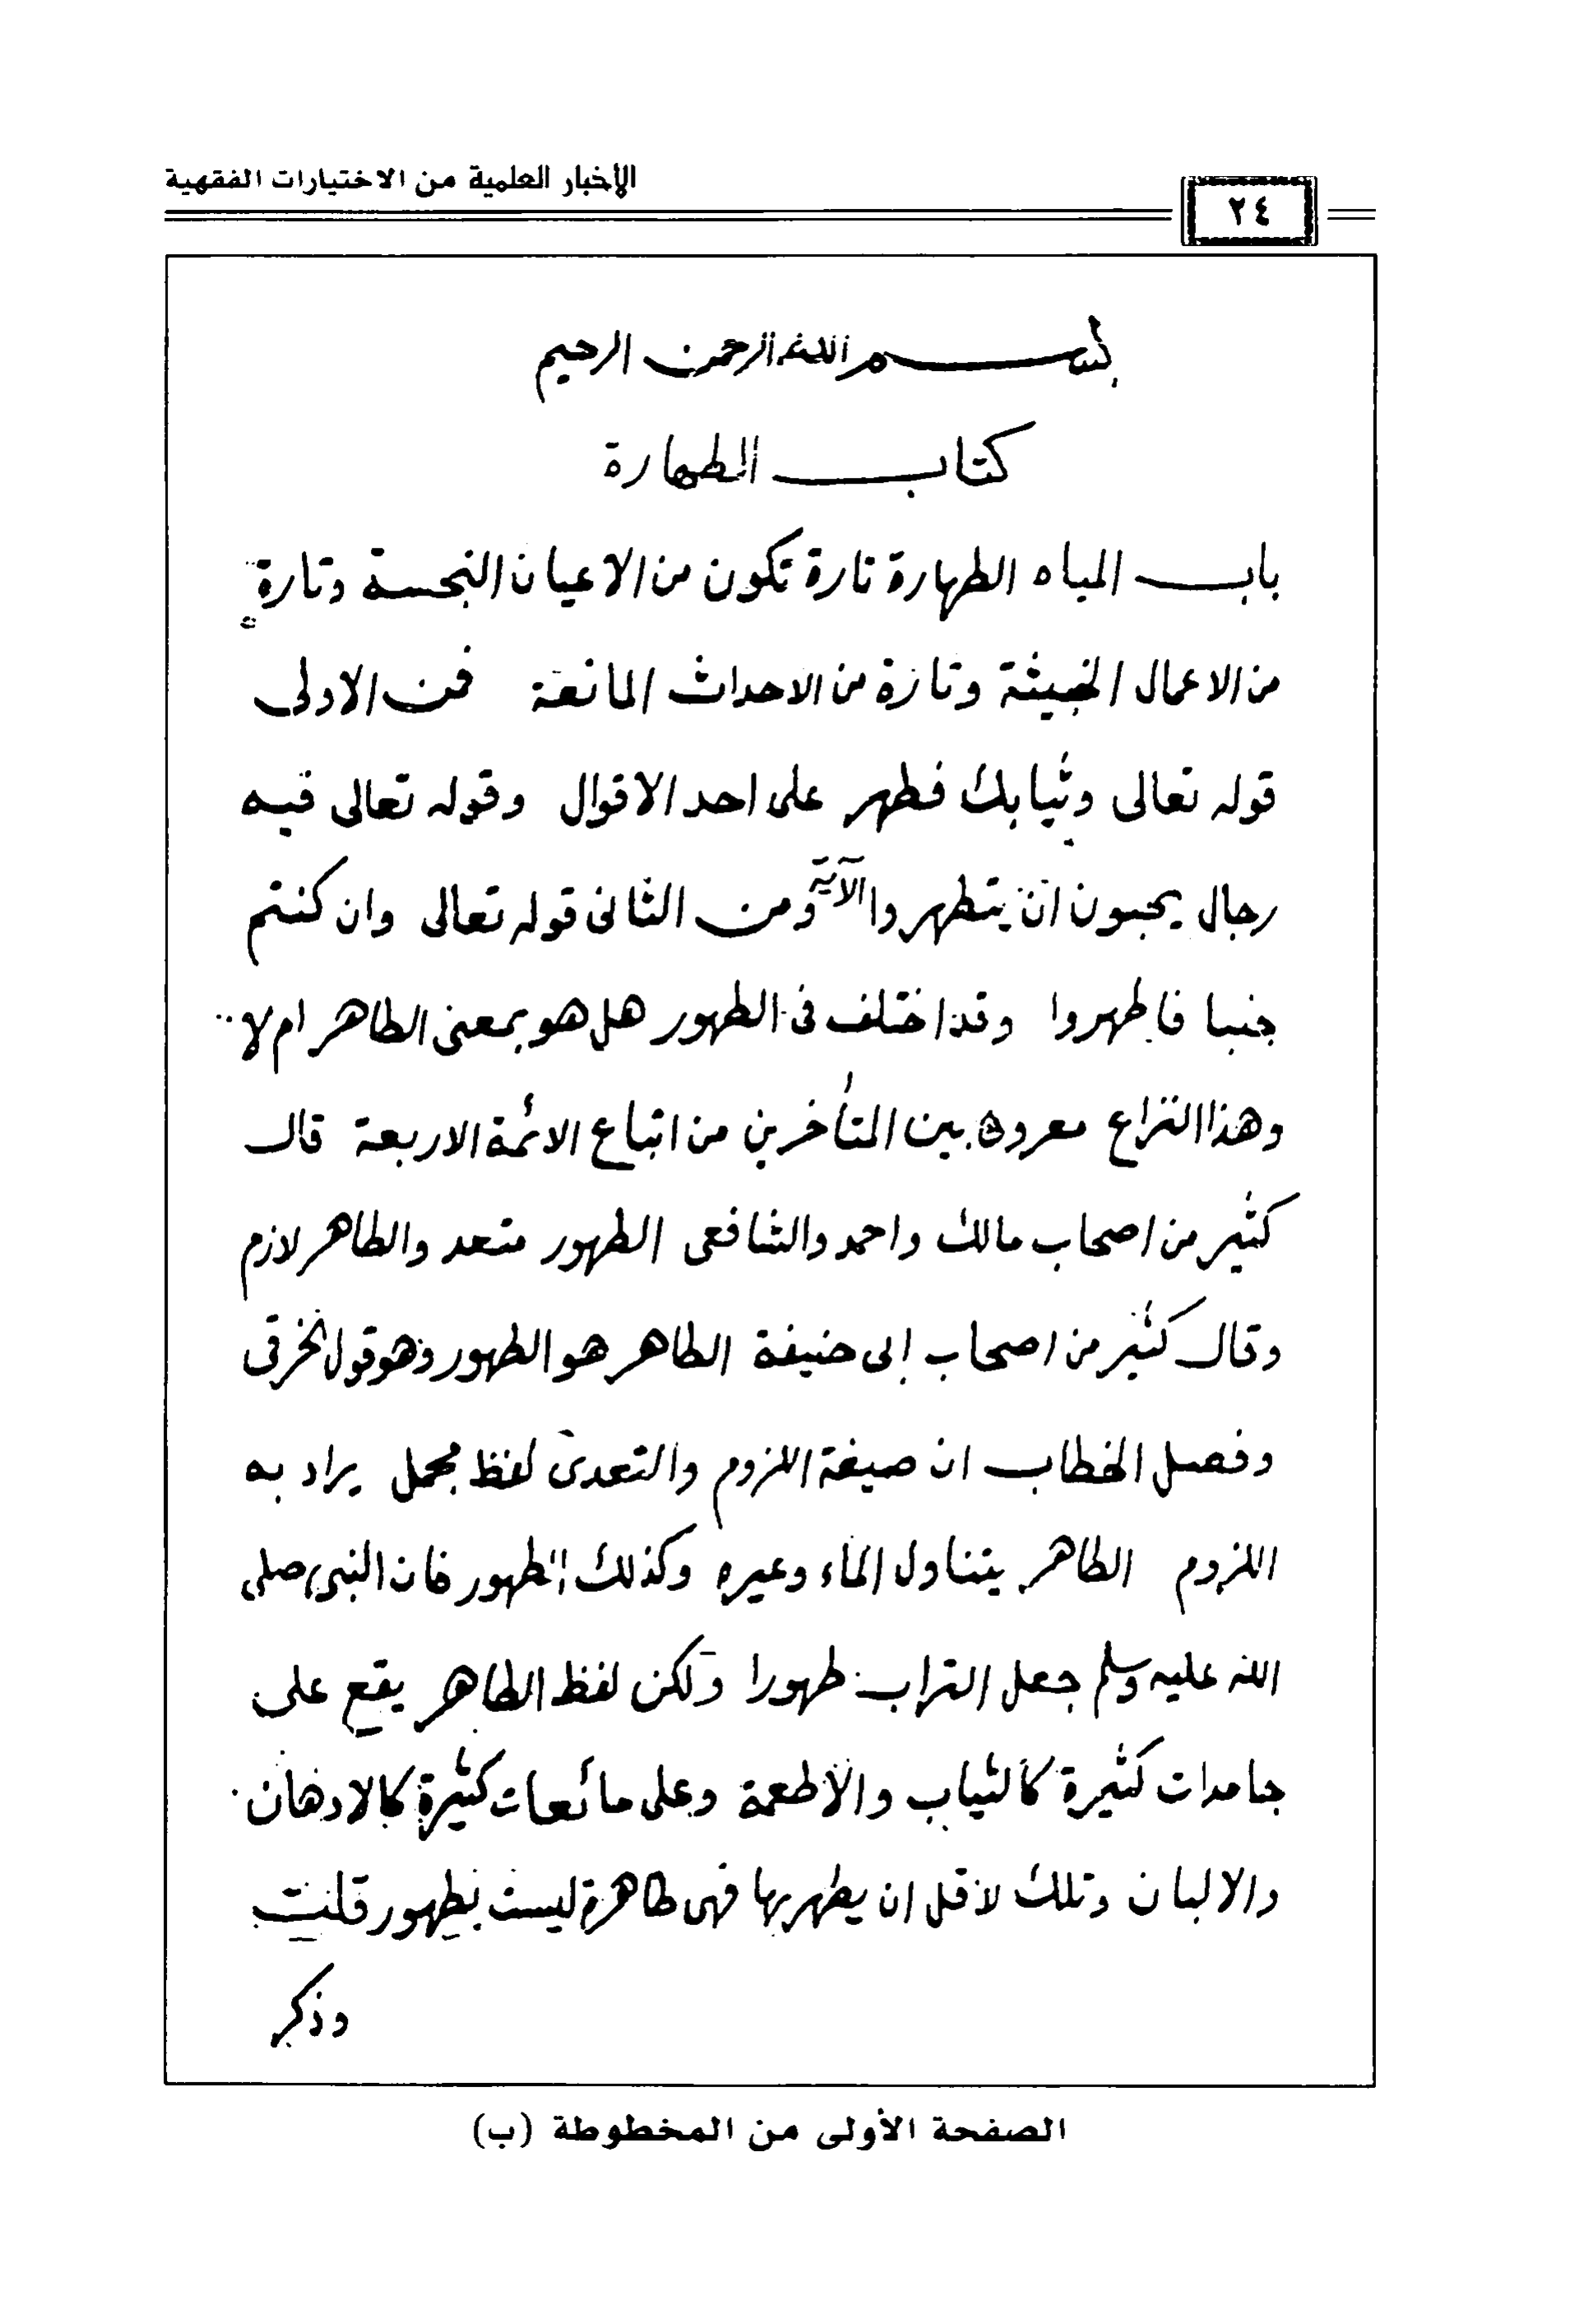 الأخبار العلمية من الاختيارات الفقهية
٢٤
بسم الله الرحمن الرحيم
كتاب الطهارة
باب المياه الطهارة تارة تكون من الاعيان النجسة وتارة
من الاعمال الخبيثة وتارة من الاحداث المانعة فمن الاولى
قوله تعالى وثيابك فطهر على احد الاقوال وقوله تعالى فيه
رجال يحبون ان يتطهروا الآية ومن الثانى قوله تعالى وان كنتم
جنبا فاطهروا وقد اختلف فى الطهور هل هو بمعنى الطاهر ام لا
وهذا النزاع معروف بين المتأخرين من اتباع الائمة الاربعة قال
كثير من اصحاب مالك واحمد والشافعى الطهور متعد والطاهر لازم
وقال كثير من اصحاب ابى حنيفة الطاهر هو الطهور وهو قول الخرقى
وفصل الخطاب ان صيغة اللزوم والتعدى لفظ مجمل يراد به
اللزوم الطاهر يتناول الماء وغيره وكذلك الطهور فان النبى صلى
الله عليه وسلم جعل التراب طهورا ولكن لفظ الطاهر يقع على
جامدات كثيرة كالثياب والأطعمة وعلى مائعات كثيرة كالادهان
والالبان وتلك لا قل ان يطهر بها فهى طاهرة ليست بطهور قلت
وذكر
الصفحة الأولى من المخطوطة (ب)